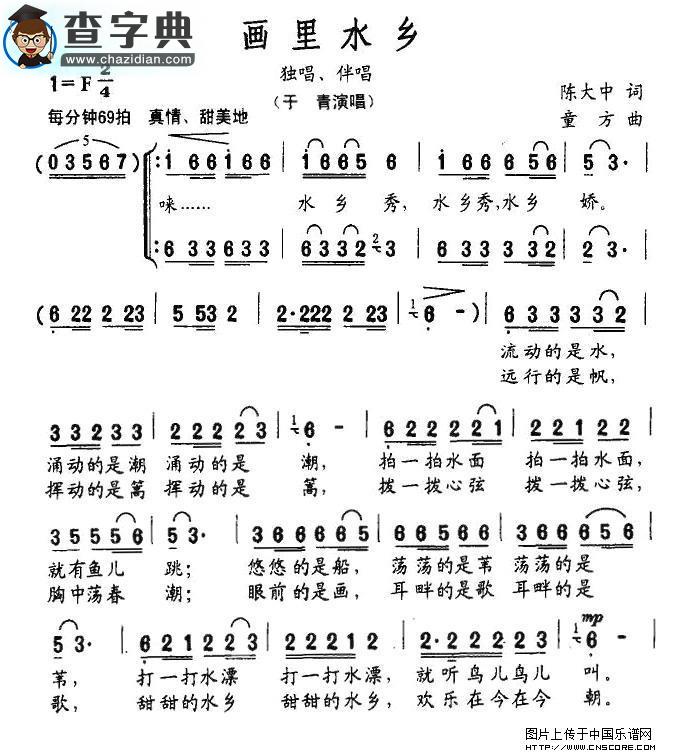 查字典
www.chazidian.com
画里水乡
独唱、伴唱
(于 青演唱)
1=F 2/4
陈大中 词
童 方 曲
每分钟69拍 真情、甜美地
5
(03567) 1 66166 | 1665 6 | 1 66 6 56 | 5 3·
唻…… 水乡 秀, 水乡秀,水乡 娇。
6 33633 | 6332 3 | 6 33 3 32 | 2 3·
(6 22 2 23 | 5 53 2 | 2·222 2 23 | 6 - ) | 6333 332
流动的是水,
远行的是帆,
33233 | 2222 23 | 6 - | 6222 221 | 22122
涌动的是潮 涌动的是 潮, 拍一拍水面 拍一拍水面,
挥动的是篙 挥动的是 篙, 拨一拨心弦 拨一拨心弦,
35556 | 5 3· | 366665 | 36663 | 366656
就有鱼儿 跳; 悠悠的是船, 荡荡的是苇 荡荡的是
胸中荡春 潮; 眼前的是画, 耳畔的是歌 耳畔的是
5 3· | 621223 | 22212 | 2·2223 | 6 -
mp
苇, 打一打水漂 打一打水漂, 就听鸟儿鸟儿 叫。
歌, 甜甜的水乡 甜甜的水乡, 欢乐在今在今 朝。
图片上传于中国乐谱网
www.cnscore.com